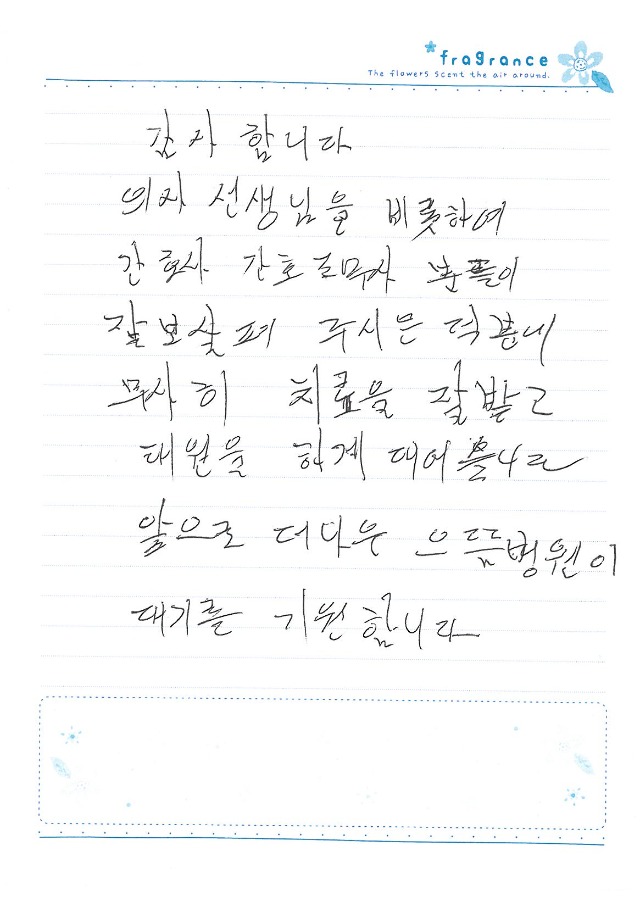 fragrance
The flowers scent the air around.
감사 합니다
의사 선생님을 비롯하여
간호사 간호조무사 분들이
잘보살펴 주시은 덕분네
무사히 치료을 잘받고
태원을 하게 대어
앞으로 더나우 으뜸병원이
대기를 기원합니다